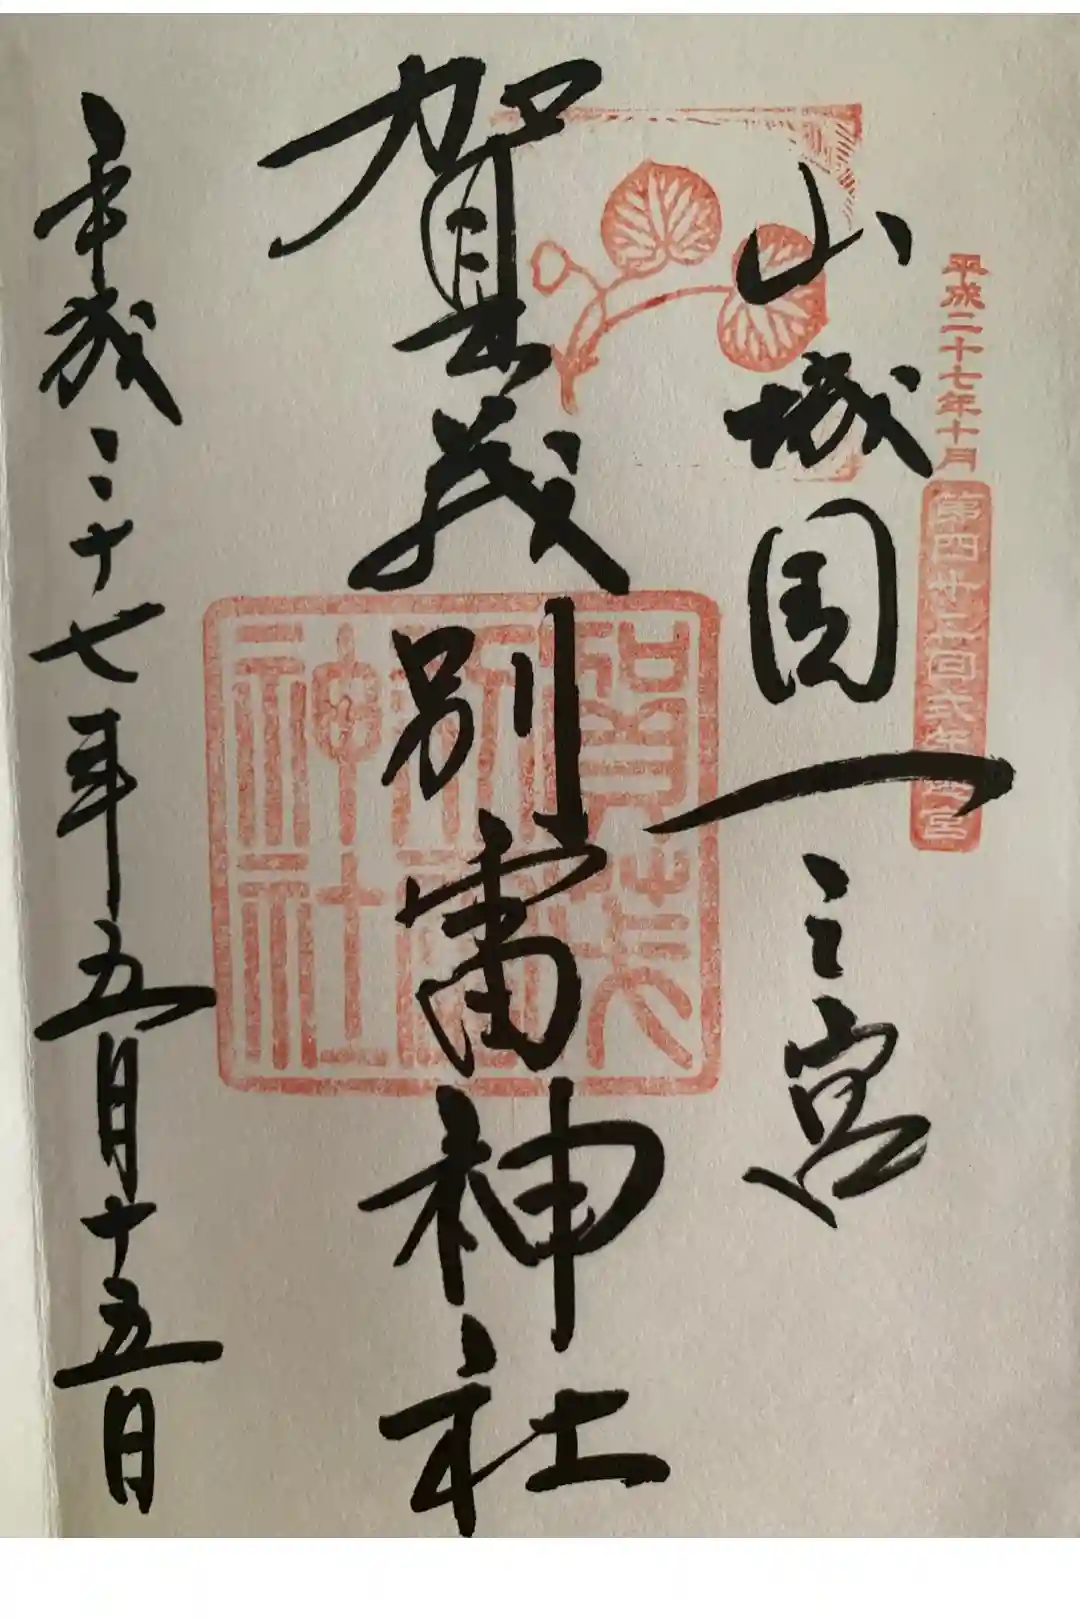 平成二十七年十月
第四回式年遷宮
山城国一之宮
賀茂別雷神社
賀茂
神社
平成二十七年五月十五日